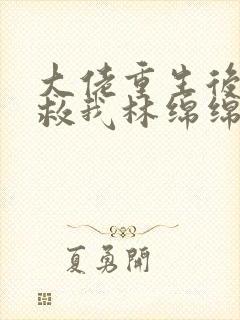 大佬重生後
救我林绵绵
夏勇開